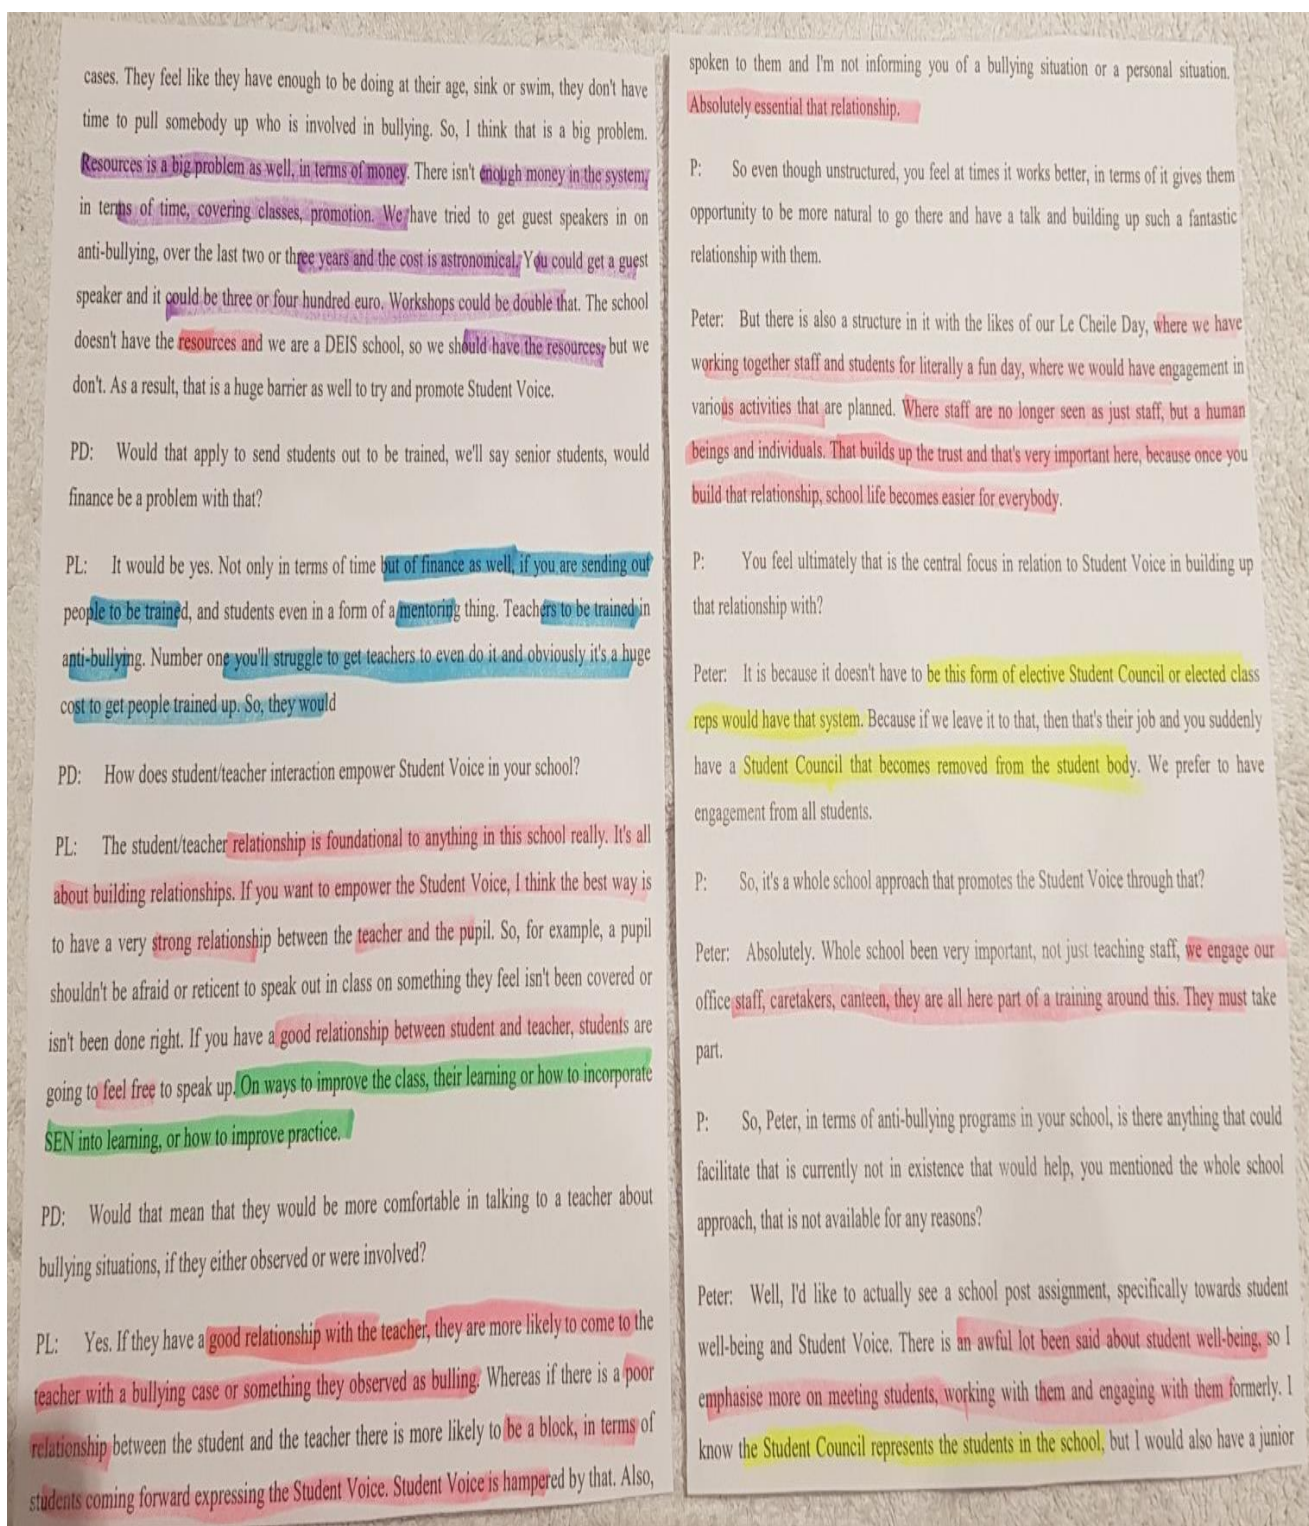 cases. They feel like they have enough to be doing at their age, sink or swim, they don't have
time to pull somebody up who is involved in bullying. So, I think that is a big problem.
Resources is a big problem as well, in terms of money. There isn't enough money in the system,
in terms of time, covering classes, promotion. We have tried to get guest speakers in on
anti-bullying, over the last two or three years and the cost is astronomical. You could get a guest
speaker and it could be three or four hundred euro. Workshops could be double that. The school
doesn't have the resources and we are a DEIS school, so we should have the resources, but we
don't. As a result, that is a huge barrier as well to try and promote Student Voice.
PD: Would that apply to send students out to be trained, we'll say senior students, would
finance be a problem with that?
PL: It would be yes. Not only in terms of time but of finance as well, if you are sending out
people to be trained, and students even in a form of a mentoring thing. Teachers to be trained in
anti-bullying. Number one you'll struggle to get teachers to even do it and obviously it's a huge
cost to get people trained up. So, they would
PD: How does student/teacher interaction empower Student Voice in your school?
PL: The student/teacher relationship is foundational to anything in this school really. It's all
about building relationships. If you want to empower the Student Voice, I think the best way is
to have a very strong relationship between the teacher and the pupil. So, for example, a pupil
shouldn't be afraid or reticent to speak out in class on something they feel isn't been covered or
isn't been done right. If you have a good relationship between student and teacher, students are
going to feel free to speak up. On ways to improve the class, their learning or how to incorporate
SEN into learning, or how to improve practice.
PD: Would that mean that they would be more comfortable in talking to a teacher about
bullying situations, if they either observed or were involved?
PL: Yes. If they have a good relationship with the teacher, they are more likely to come to the
teacher with a bullying case or something they observed as bulling. Whereas if there is a poor
relationship between the student and the teacher there is more likely to be a block, in terms of
students coming forward expressing the Student Voice. Student Voice is hampered by that. Also,
spoken to them and I'm not informing you of a bullying situation or a personal situation.
Absolutely essential that relationship.
P: So even though unstructured, you feel at times it works better, in terms of it gives them
opportunity to be more natural to go there and have a talk and building up such a fantastic
relationship with them.
Peter: But there is also a structure in it with the likes of our Le Cheile Day, where we have
working together staff and students for literally a fun day, where we would have engagement in
various activities that are planned. Where staff are no longer seen as just staff, but a human
beings and individuals. That builds up the trust and that's very important here, because once you
build that relationship, school life becomes easier for everybody.
P: You feel ultimately that is the central focus in relation to Student Voice in building up
that relationship with?
Peter: It is because it doesn't have to be this form of elective Student Council or elected class
reps would have that system. Because if we leave it to that, then that's their job and you suddenly
have a Student Council that becomes removed from the student body. We prefer to have
engagement from all students.
P: So, it's a whole school approach that promotes the Student Voice through that?
Peter: Absolutely. Whole school been very important, not just teaching staff, we engage our
office staff, caretakers, canteen, they are all here part of a training around this. They must take
part.
P: So, Peter, in terms of anti-bullying programs in your school, is there anything that could
facilitate that is currently not in existence that would help, you mentioned the whole school
approach, that is not available for any reasons?
Peter: Well, I'd like to actually see a school post assignment, specifically towards student
well-being and Student Voice. There is an awful lot been said about student well-being, so I
emphasise more on meeting students, working with them and engaging with them formerly. I
know the Student Council represents the students in the school, but I would also have a junior